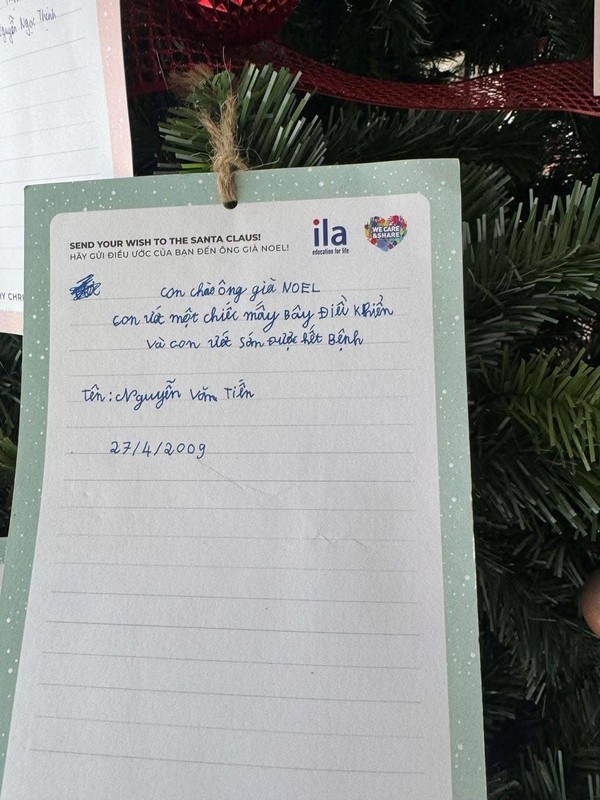 Nguyễn Ngọc Thịnh
SEND YOUR WISH TO THE SANTA CLAUS!
HÃY GỬI ĐIỀU ƯỚC CỦA BẠN ĐẾN ÔNG GIÀ NOEL!
ila
education for life
WE CARE
&SHARE
Y CHRI
con chào ông già NOEL
con ước một chiếc mấy Bây Điều Khiển
và con ước sớm được hết Bệnh
Tên: Nguyễn Văn Tiến
27/4/2009